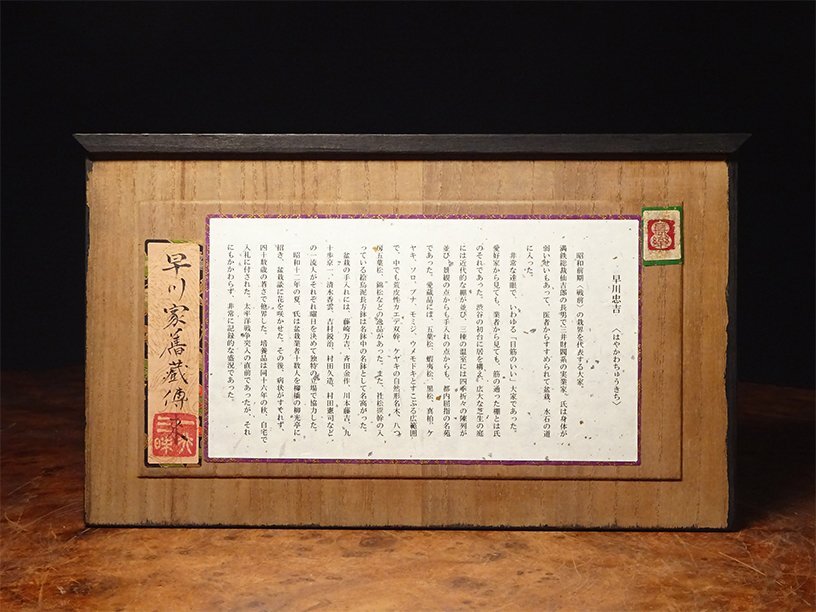 早川忠吉 〈はやかわちゅうきち〉
昭和前期〈戦前〉の盆界を代表する大家。
満鉄総裁仙石郎の長男で三井財閥系の実業家。氏は身体が
弱いせいもあって、医者からすすめられて盆栽、水石の道
に入った。
非常な達眼で、いわゆる「目筋のいい」大家であった。
愛好家から見ても、業者から見ても、筋の通った棚とは氏
のそれであった。渋谷の初台に居を構え、広大な芝生の庭
には近代的な棚が並び、三棟の温室には四季折々の陳列が
並び、景観の点からも手入れの点からも、都内屈指の名苑
であった。愛蔵品には、五葉松、蝦夷松、黒松、真柏、ケ
ヤキ、ソロ、ブナ、モミジ、ウメモドキとすこぶる広範囲
で、中でも荒皮性カエデ双幹、ケヤキの自然形名木、八つ
房五葉松、錦松などの逸品があった。また、杜松双幹の入
っている絵鳥泥長方鉢は名鉢中の名鉢として名高かった。
盆栽の手入れには、藤崎万吉、斉田金作、川本藤吉、九
十歩京一、清水香雲、吉村鋭治、村田久造、村田憲司など
の一流人がそれぞれ曜日を決めて独特の立場で協力した。
昭和十二年の夏、氏は盆栽業者十数人を柳橋の柳光亭に
招き、盆栽談に花を咲かせた。その後、病状がすぐれず、
四十数歳の若さで他界した。培養品は同十六年の秋、自宅で
入札に付された。太平洋戦争突入の直前であったが、それ
にもかかわらず、非常に記録的な盛況であった。
早川家舊蔵傳来
三昧